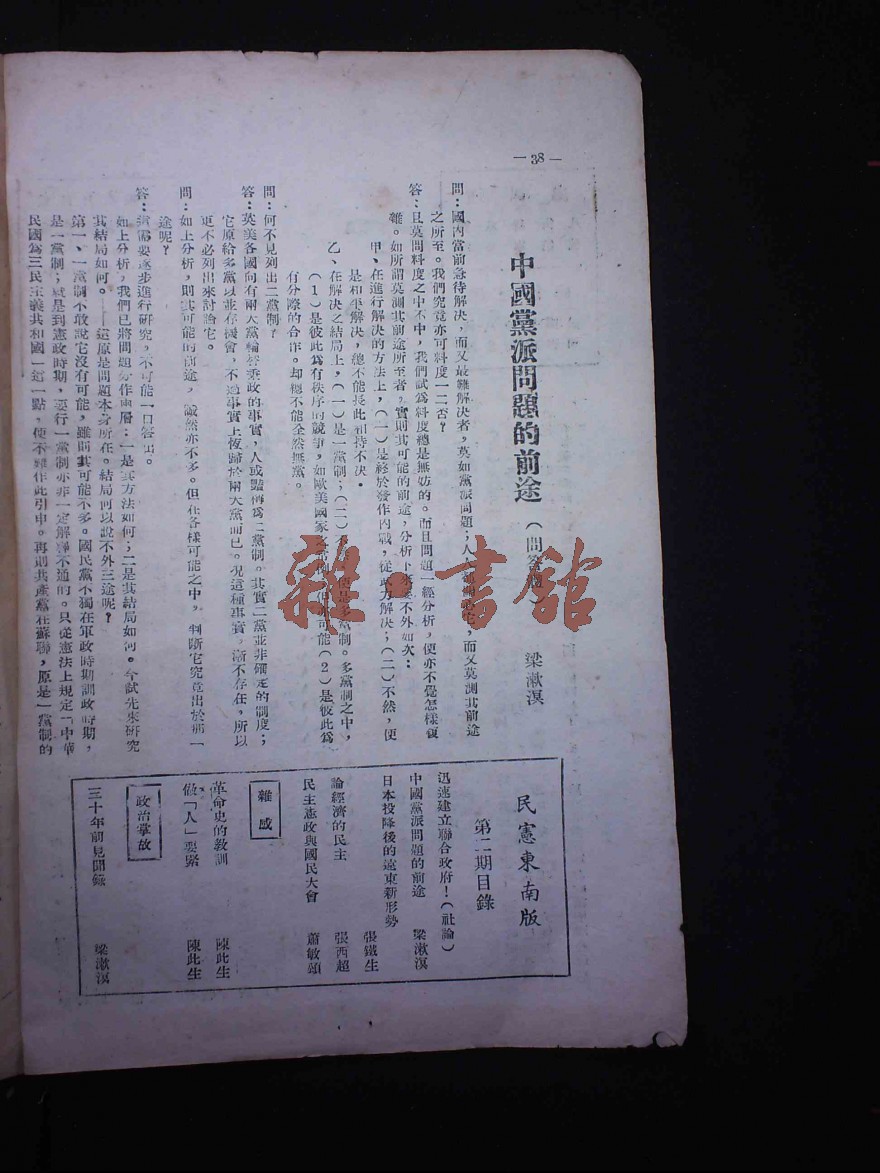 — 38 —
中國黨派問題的前途
(問答體)
梁漱溟
問:國內當前急待解決,而又最難解決者,莫如黨派問題;人人都關心它,而又莫測其前途
之所至。我們究竟亦可料度一二否?
答:且莫問料度之中不中,我們試爲料度總是無妨的。而且問題一經分析,便亦不覺怎樣複
雜。如所謂莫測其前途所至者,實則其可能的前途,分析下來要不外如次:
甲、在進行解決的方法上,(一)是終於發作內戰,從武力解決;(二)不然,便
是和平解決,總不能長此相持不決。
乙、在解決之結局上,(一)是一黨制;(二)便是多黨制。多黨制之中,
(1)是彼此爲有秩序的競爭,如歐美國家之常例 可能(2)是彼此爲
有分際的合作。却總不能全然無黨。
問:何不見列出二黨制?
答:英美各國向有兩大黨輪替秉政的事實,人或豔稱爲二黨制。其實二黨並非確定的制度;
它原給多黨以並存機會,不過事實上恆歸於兩大黨而已。況這種事實,漸不存在,所以
更不必列出來討論它。
問:如上分析,則其可能的前途,誠然亦不多。但在各樣可能之中,判斷它究竟出於那一
途呢?
答:這需要逐步進行研究,不可能一口答出。
如上分析,我們已將問題分作兩層:一是其方法如何;二是其結局如何。今試先來研究
其結局如何。——這原是問題本身所在。結局何以說不外三途呢?
第一、一黨制不敢說它沒有可能,雖則其可能不多。國民黨不獨在軍政時期訓政時期,
是一黨制;就是到憲政時期,要行一黨制亦非一定解釋不通的。只從憲法上規定「中華
民國爲三民主義共和國」這一點,便不難作此引申。再則共產黨在蘇聯,原是一黨制的
民憲東南版
第二期目錄
迅速建立聯合政府!(社論)
中國黨派問題的前途 梁漱溟
日本投降後的遠東新形勢
張鐵生
論經濟的民主 張西超
民主憲政與國民大會 蕭敏頌
雜感
革命史的教訓 陳此生
做「人」要緊 陳此生
政治掌故
三十年前見聞錄 梁漱溟
雜書館